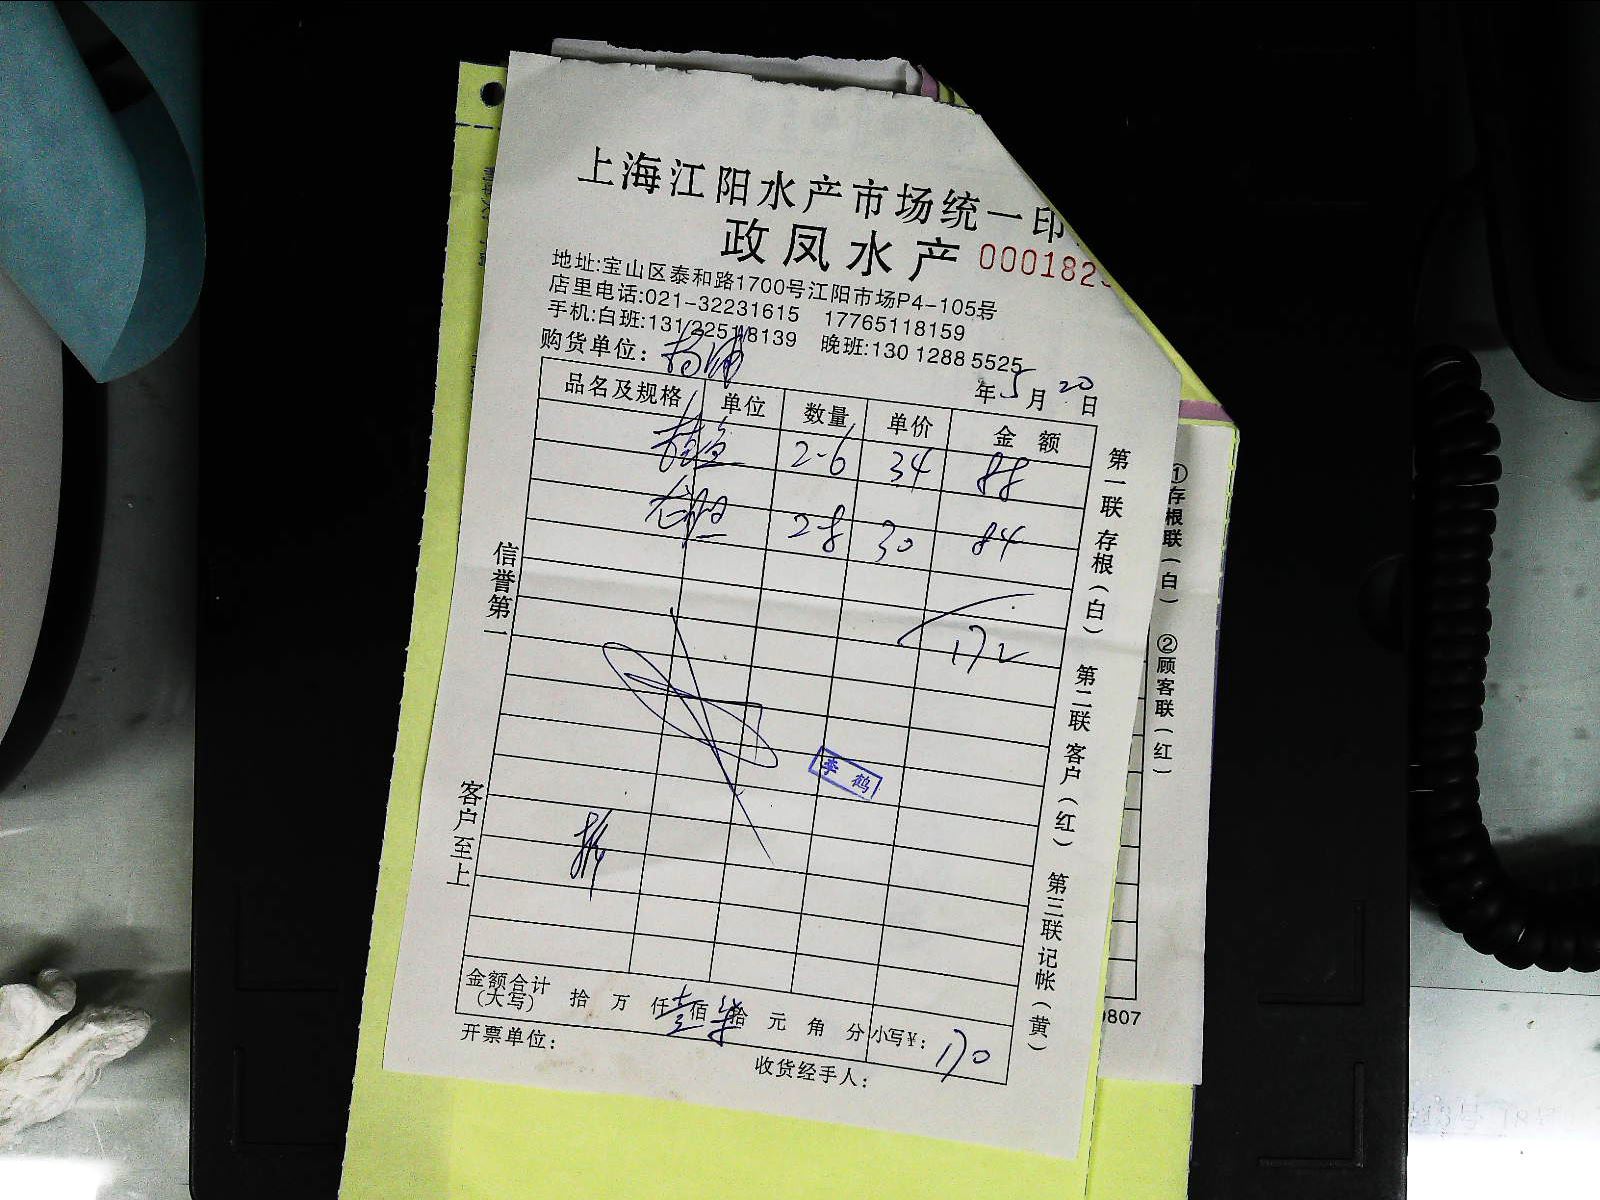 上海江阳水产市场统一印
政凤水产 0001825
地址:宝山区泰和路1700号江阳市场P4-105号
店里电话:021-32231615 17765118159
手机:白班:13122518139 晚班:130 1288 5525
购货单位: 杨浦
年5月20日
品名及规格 单位 数量 单价 金额
桂鱼 2-6 34 88
2-8 30 84
172
李鹤
金额合计(大写) 拾 万 仟壹佰柒拾 元 角 分 小写¥: 170
开票单位: 收货经手人:
信誉第一 客户至上
第一联 存根(白) 第二联 客户(红) 第三联 记帐(黄)
①存根联(白) ②顾客联(红)
0807